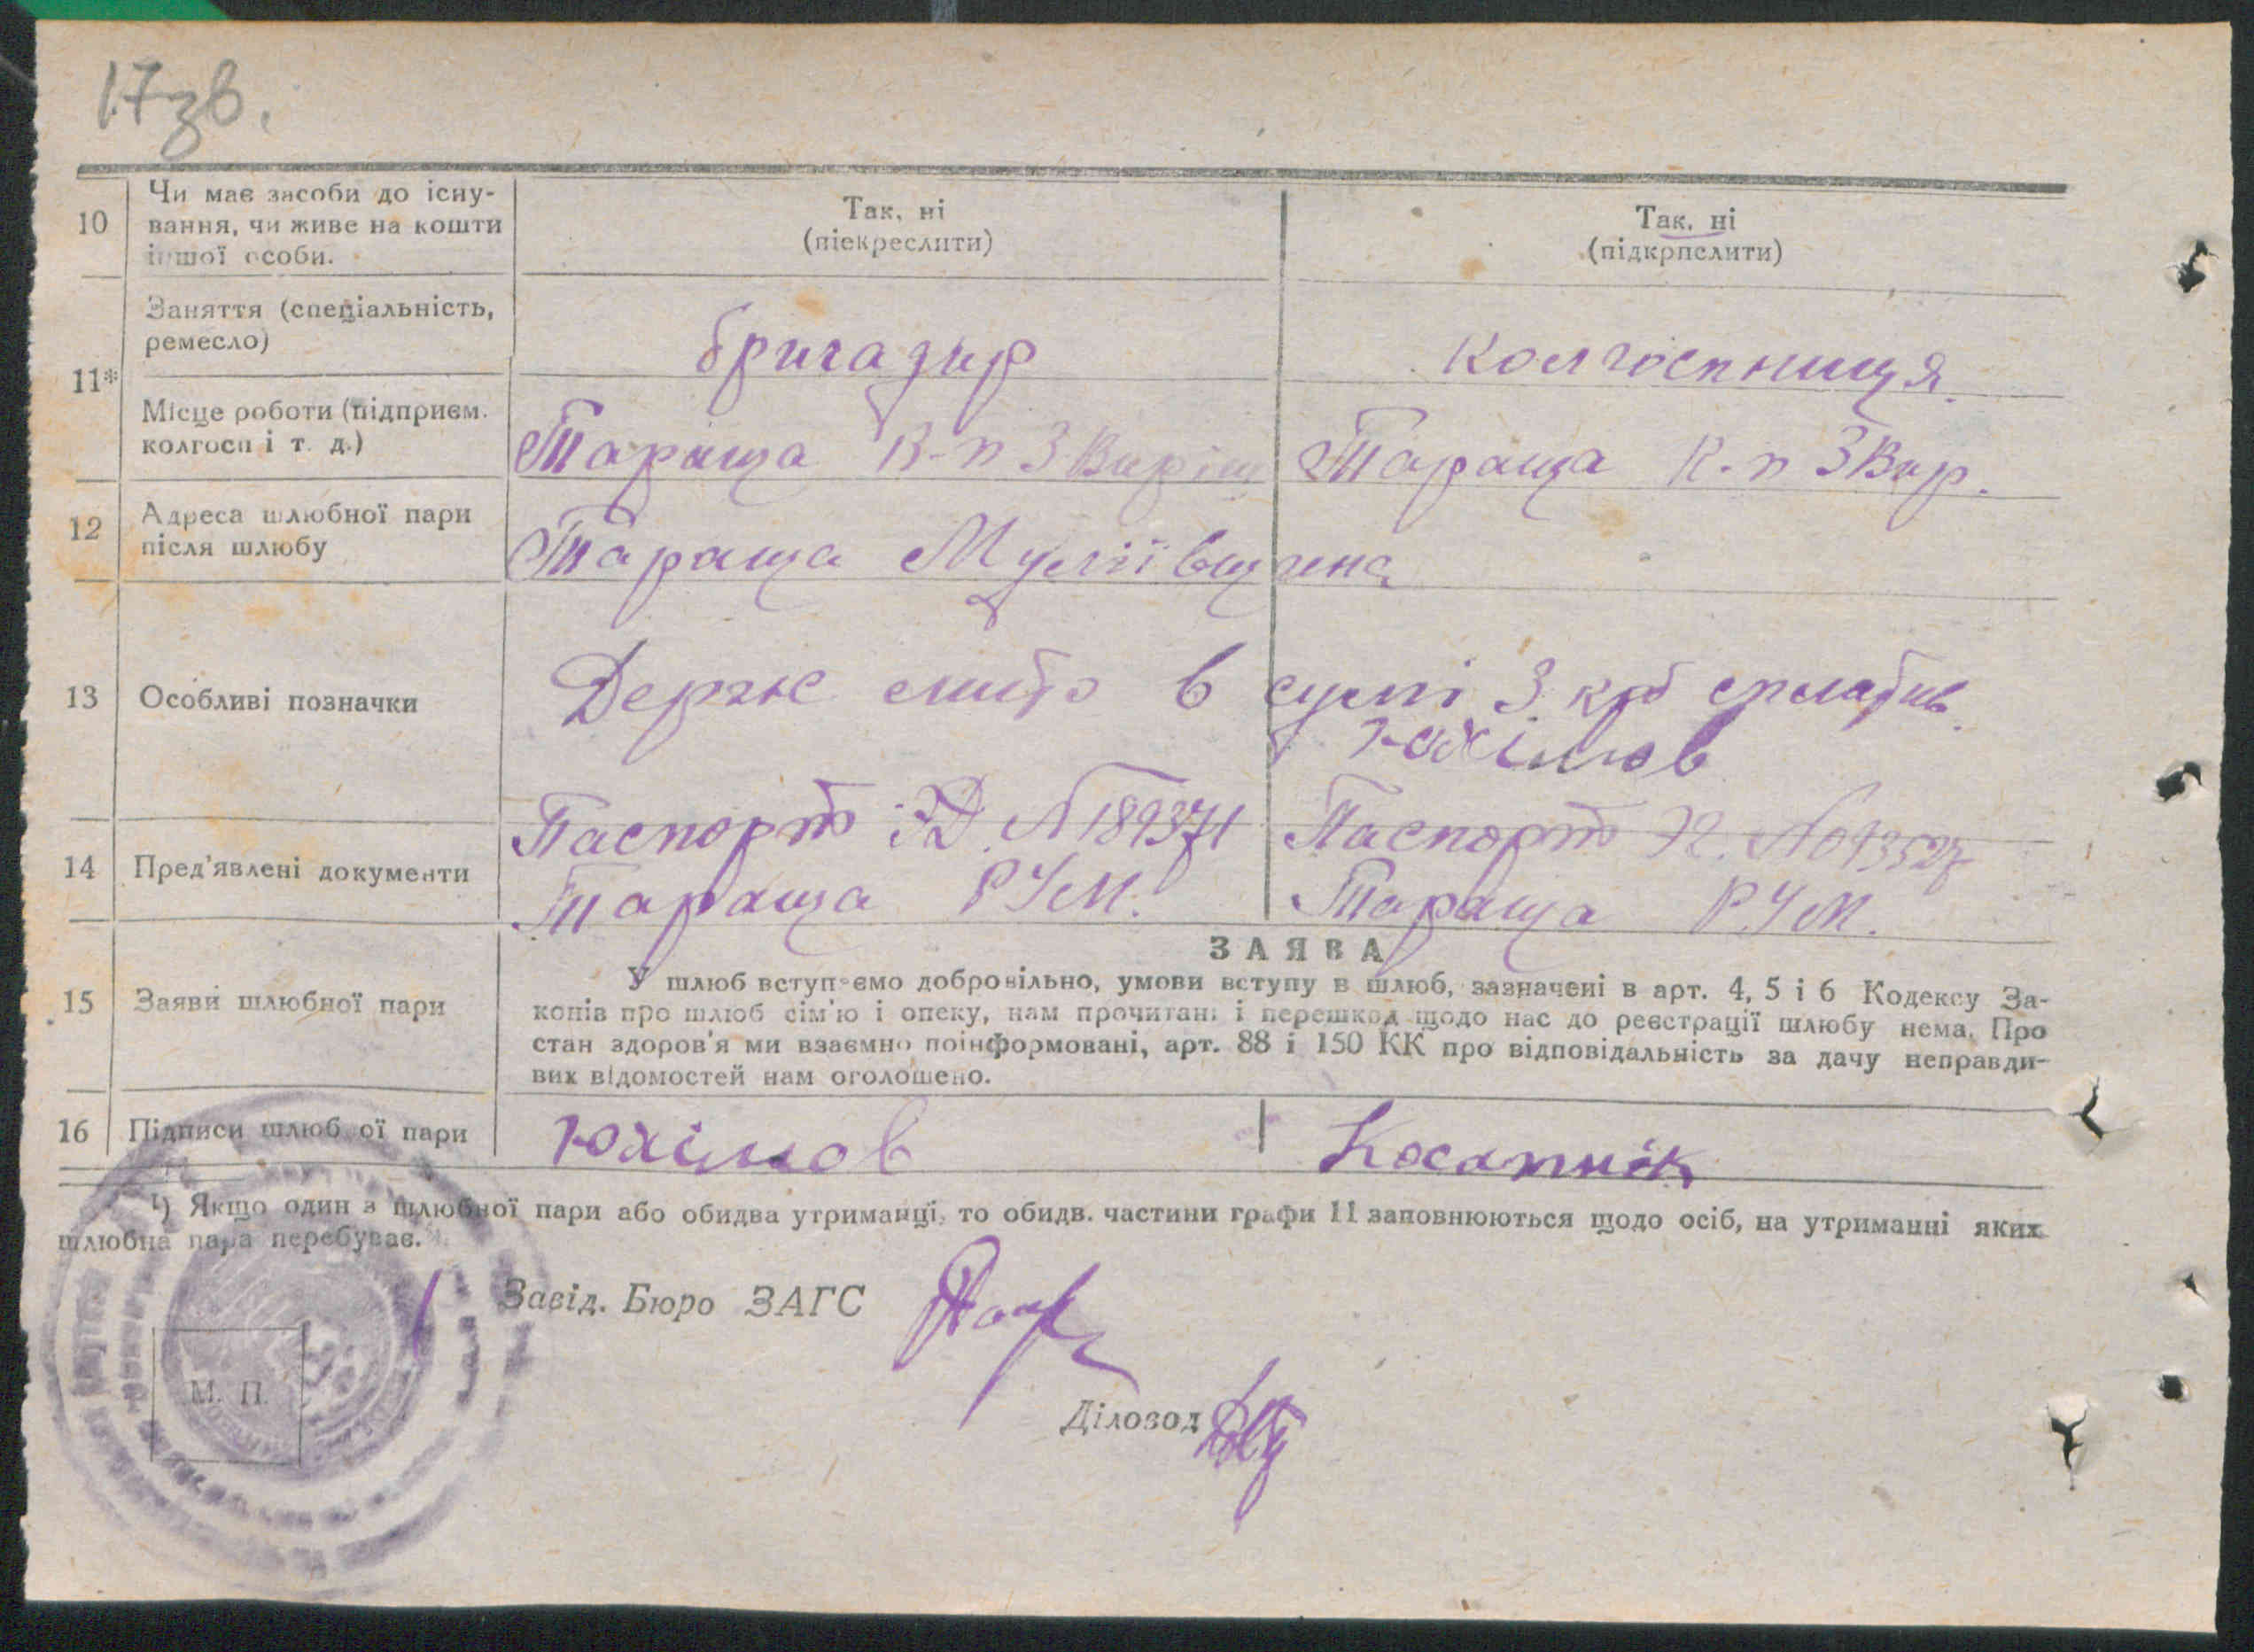 17зв.
10 Чи має засоби до існу-
вання, чи живе на кошти
іншої особи.
Так, ні
(піекреслити)
Так, ні
(підкрпслити)
11*
Заняття (спеціальність,
ремесло)
бригадир
колгоспниця
Місце роботи (підприєм.
колгосп і т. д.)
Тараща К-п 3 Виріш
Тараща К-п 3 Вир.
12 Адреса шлюбної пари
після шлюбу
Тараща Муліївщина
13 Особливі позначки
Держ мито в сумі 3 крб сплатив
Юхімов
14 Пред'явлені документи
Паспорт ЭД. N 189371
Тараща РУМ.
Паспорт
Тараща Р.УМ.
15 Заяви шлюбної пари
ЗАЯВА
У шлюб вступаємо добровільно, умови вступу в шлюб, зазначені в арт. 4, 5 і 6 Кодексу За-
конів про шлюб сім'ю і опеку, нам прочитані і перешкод щодо нас до реєстрації шлюбу нема. Про
стан здоров'я ми взаємно поінформовані, арт. 88 і 150 КК про відповідальність за дачу неправди-
вих відомостей нам оголошено.
16 Підписи шлюбної пари
Юхімов
Косатнік
¹) Якщо один з шлюбної пари або обидва утриманці, то обидв. частини графи 11 заповнюються щодо осіб, на утриманні яких
шлюбна пара перебуває.
Завід. Бюро ЗАГС
Діловод
М. П.